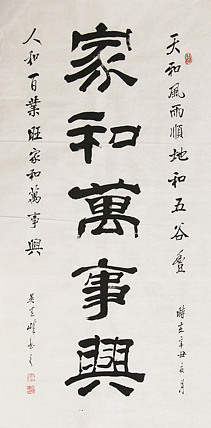 天和風雨順地和五谷豊
時在辛丑
家和萬事興
人和百業旺家和萬事興